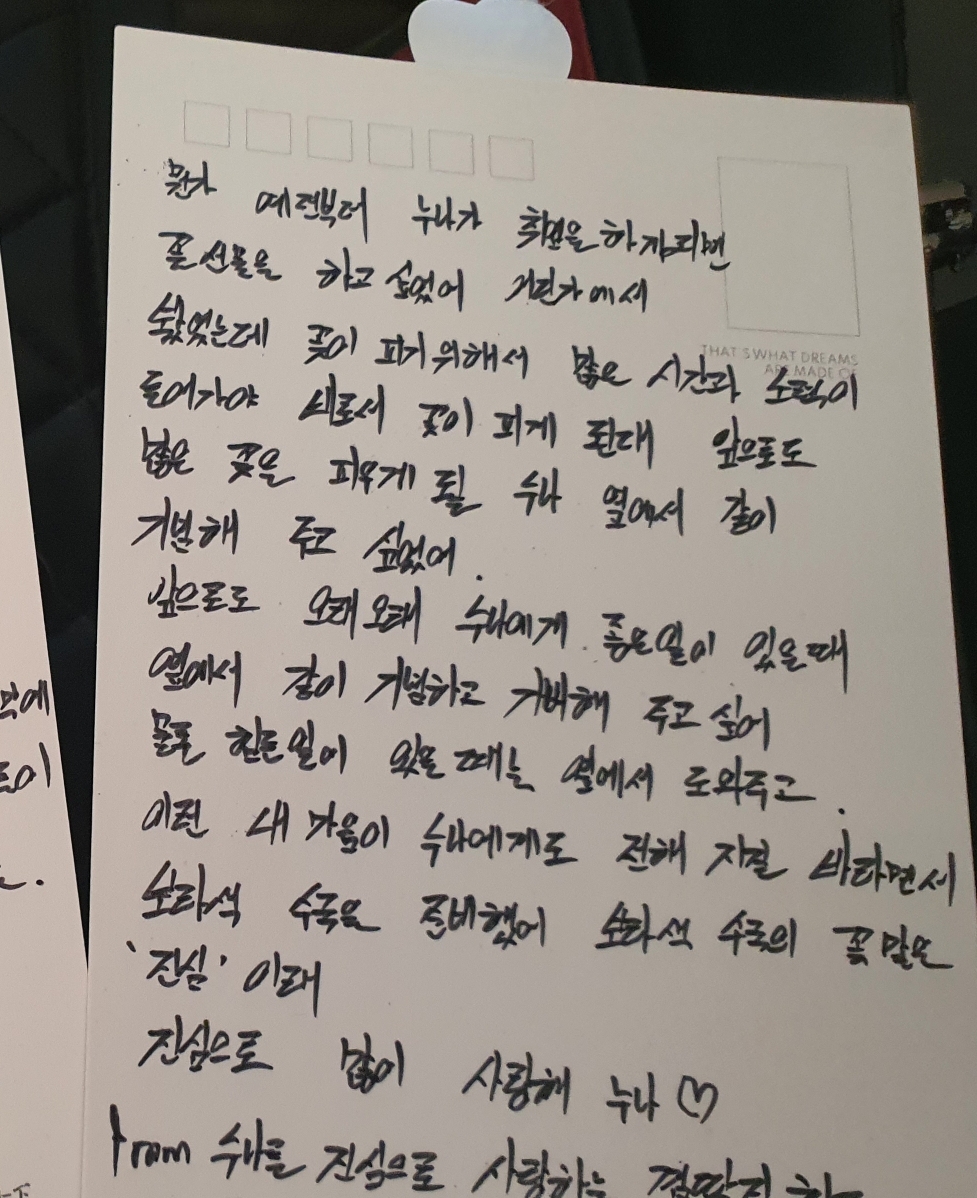 뭔가 예전부터 누나가 취업을 하게되면
꽃 선물을 하고 싶었어 어딘가에서
봤었는데 꽃이 피기 위해서 많은 시간과 노력이
THAT'S WHAT DREAMS
ARE MADE OF
들어가야 비로서 꽃이 피게 된대 앞으로도
많은 꽃을 피우게 될 누나 옆에서 같이
기념해 주고 싶었어.
앞으로도 오래오래 누나에게 좋은일이 있을때
옆에서 같이 기념하고 기뻐해 주고 싶어
물론 힘든일이 있을 때는 옆에서 도와주고.
이런 내 마음이 누나에게도 전해 지길 바라면서
소라색 수국을 준비했어 소라색 수국의 꽃말은
'진심' 이래
진심으로 많이 사랑해 누나 ♡
From 누나를 진심으로 사랑하는 껌딱지